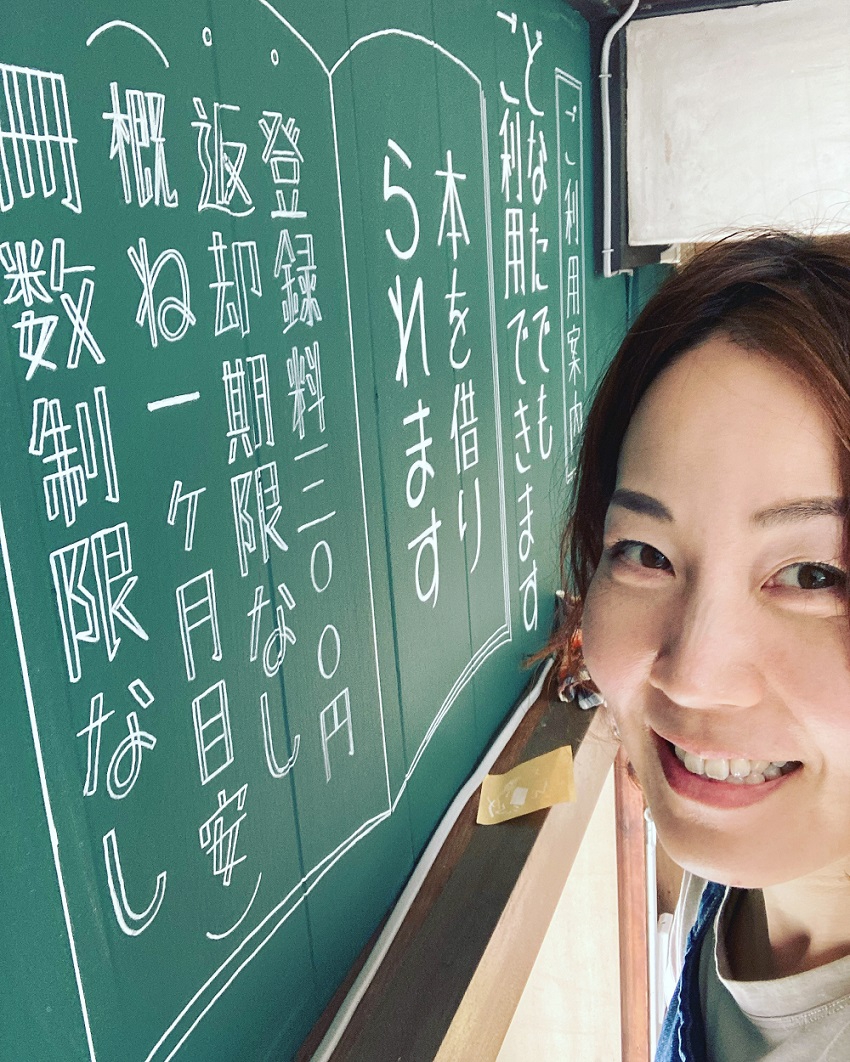 ご利用案内
どなたでも
ご利用できます
本を借り
られます
◦登録料三〇〇円
◦返却期限なし
（概ね一ケ月目安）
冊数制限なし